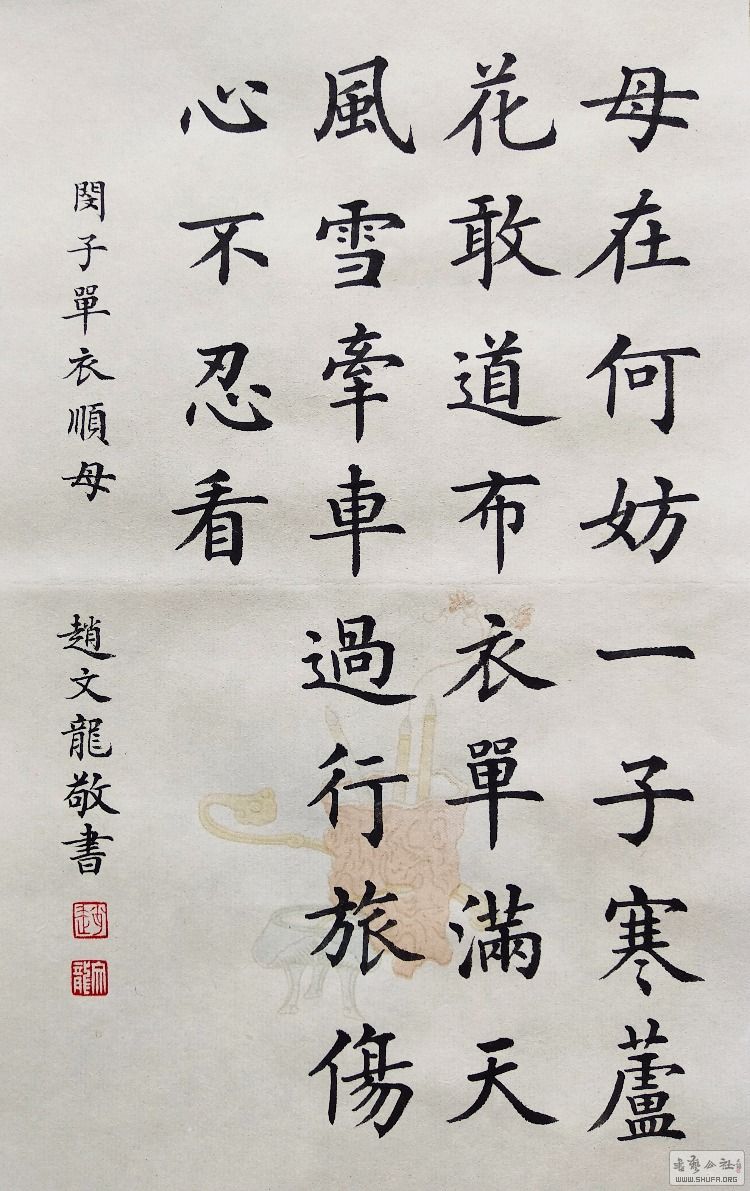 母在何妨一子寒蘆
花敢道布衣單滿天
風雪牽車過行旅傷
心不忍看
閔子單衣順母
趙文龍敬書
趙
文龍
书艺公社
WWW.SHUFA.ORG